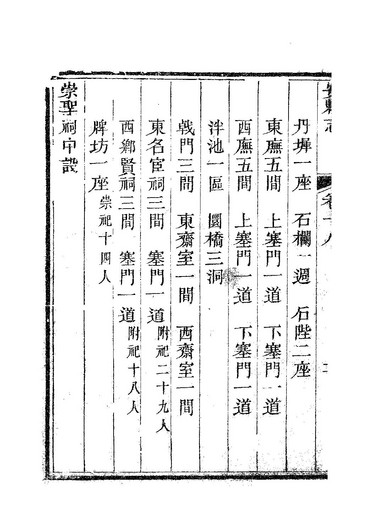 縣志 卷十八
丹墀一座 石欄一週 石陛二座
東廡五間 上塞門一道 下塞門一道
西廡五間 上塞門一道 下塞門一道
泮池一區 圜橋三洞
戟門三間 東齋室一間 西齋室一間
東名宦祠三間 塞門一道 附祀二十九人
西鄉賢祠三間 塞門一道 附祀十八人
牌坊一座 崇祀十四人
崇聖祠中設